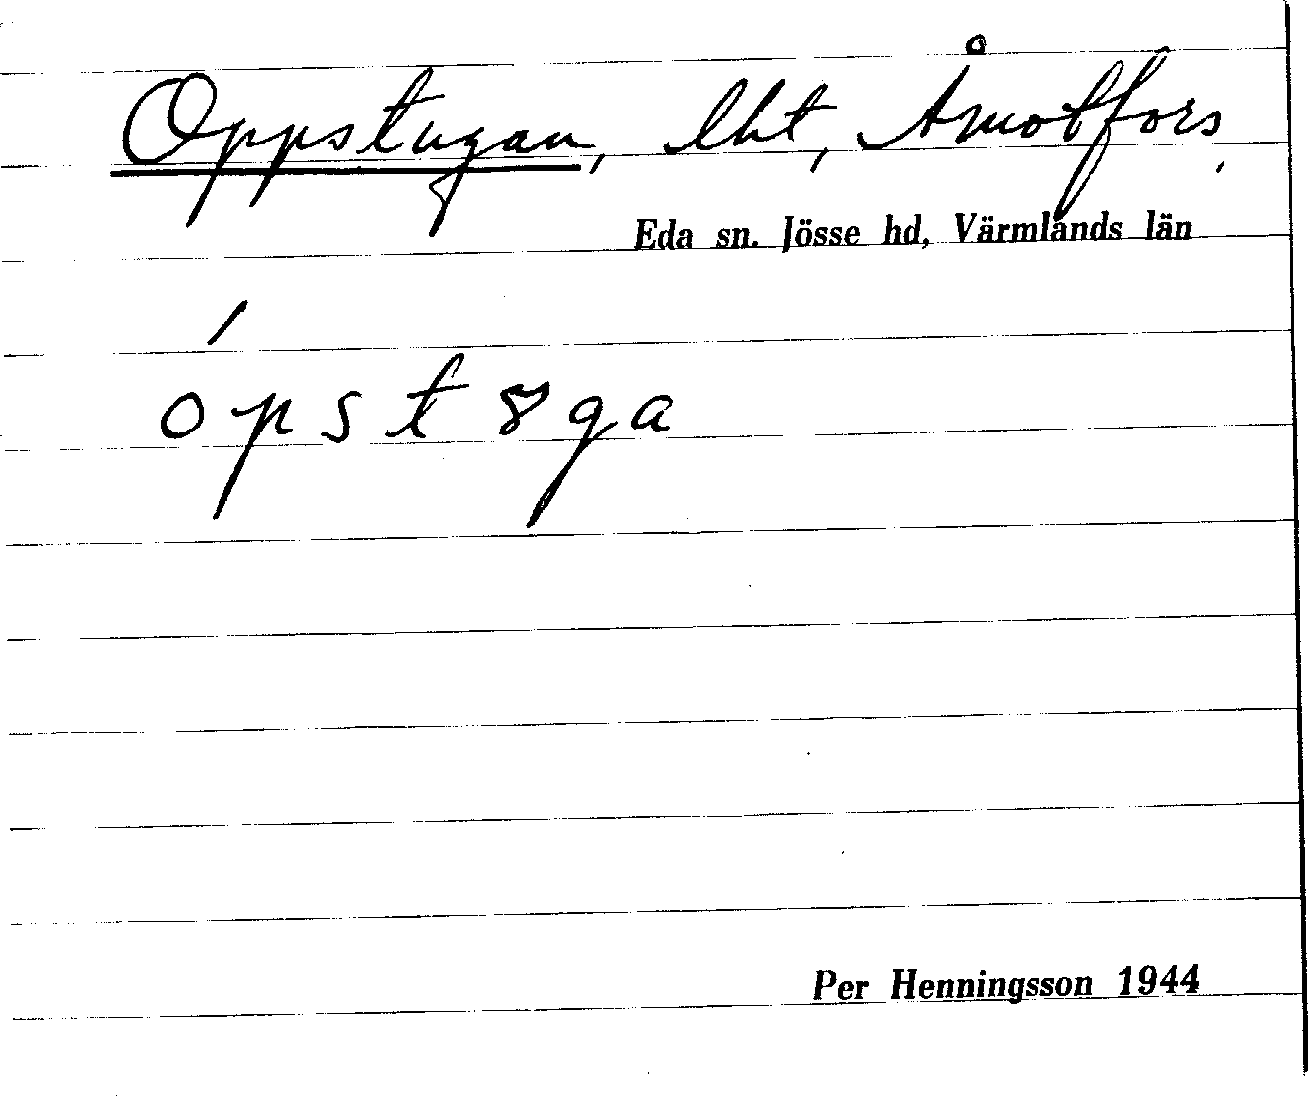 Oppstugan, lht, Åmotfors,
Eda sn. Jösse hd, Värmlands län
ópst8ga
Per Henningsson 1944